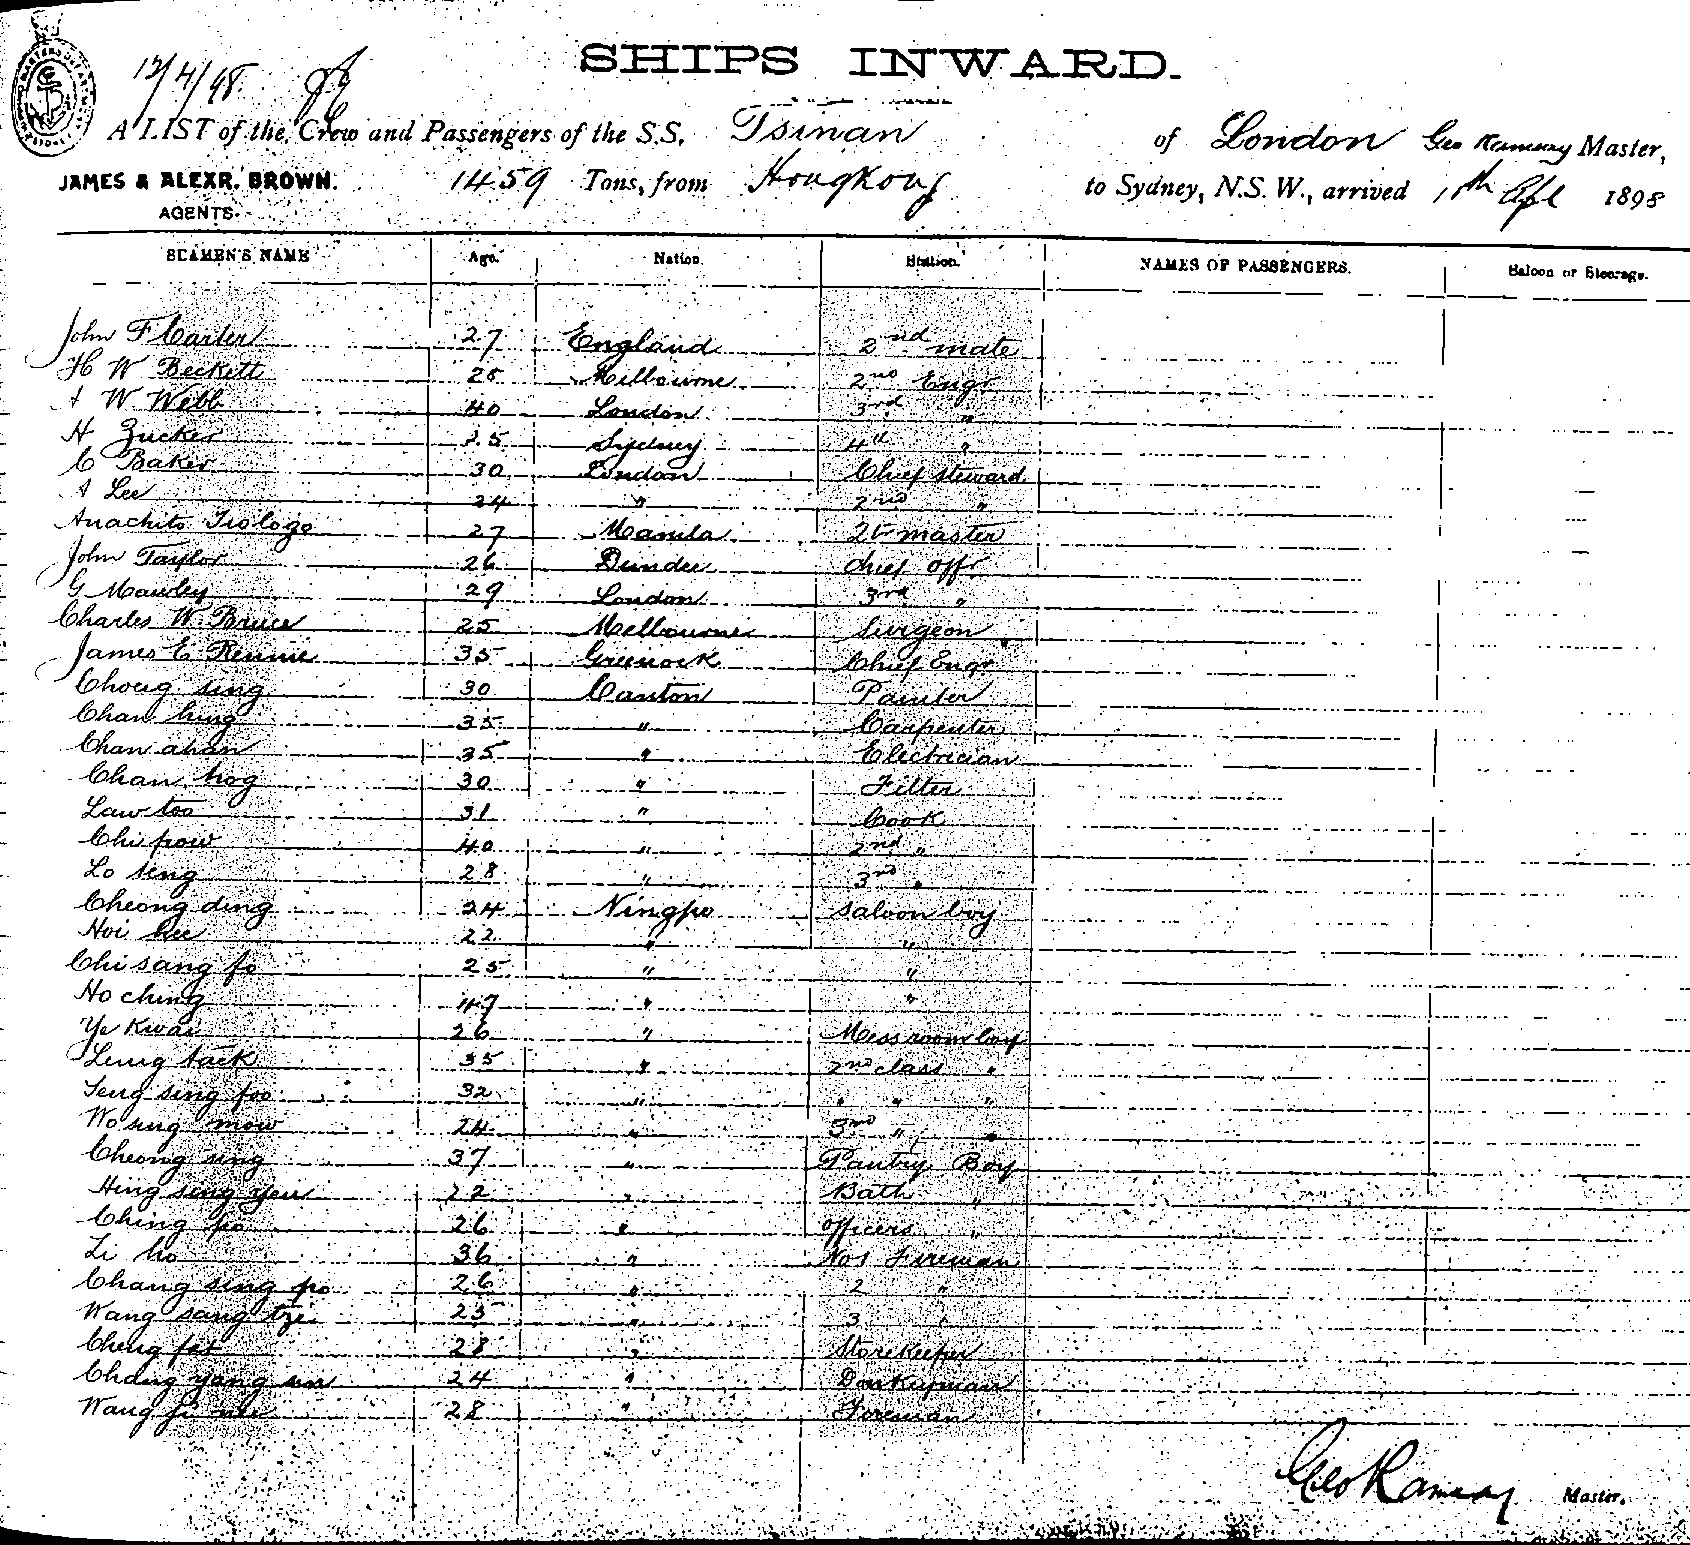 12/4/98
SHIPS INWARD.
A LIST of the Crew and Passengers of the S.S. Tsinan of London Geo Ramsay Master,
JAMES & ALEXR. BROWN. 1459 Tons, from HongKong to Sydney, N.S.W., arrived 1th Apl 1898
AGENTS.
SEAMEN'S NAME Age. Nation. Station. NAMES OF PASSENGERS. Saloon or Steerage.
John F Carter 27 England 2nd mate
H W Beckett 28 Melbourne 2nd Engr
A W Webb 40 London 3rd "
H Zucker 25 Sydney 4th "
C Baker 30 London Chief steward
A Lee 24 " 2nd "
Anachito Tiologo 27 Manila Qr master
John Taylor 26 Dundee chief offr
G Mawley 29 London 3rd "
Charles W. Bruce 25 Melbourne Surgeon
James E Rennie 35 Greenock Chief Engr
Choug sing 30 Canton Painter
Chan hing 35 " Carpenter
Chan ahan 35 " Electrician
Chan hog 30 " Fitter
Law too 31 " Cook
Chi pow 40 " 2nd "
Lo seng 28 " 3rd "
Cheong ding 24 Ningpo saloon boy
Hoi hee 22 " "
Chi sang fo 25 " "
Ho ching 47 " "
Ye Kwai 26 " Messroom boy
Leung tack 35 " 2nd class "
Seng sing foo 32 " " " "
Wo sung mow 24 " 3rd " "
Cheong sing 37 " Pantry Boy
Hing seng yeu 22 " Bath "
Ching po 26 " officers "
Li ho 36 " No 1 Fireman
Chang sing po 26 " 2 "
Wang sang tze 25 " 3 "
Cheng fat 28 " Storekeeper
Chang yang sun 24 " Donkeyman
Wang 28 " Foreman
Geo Ramsay Master.